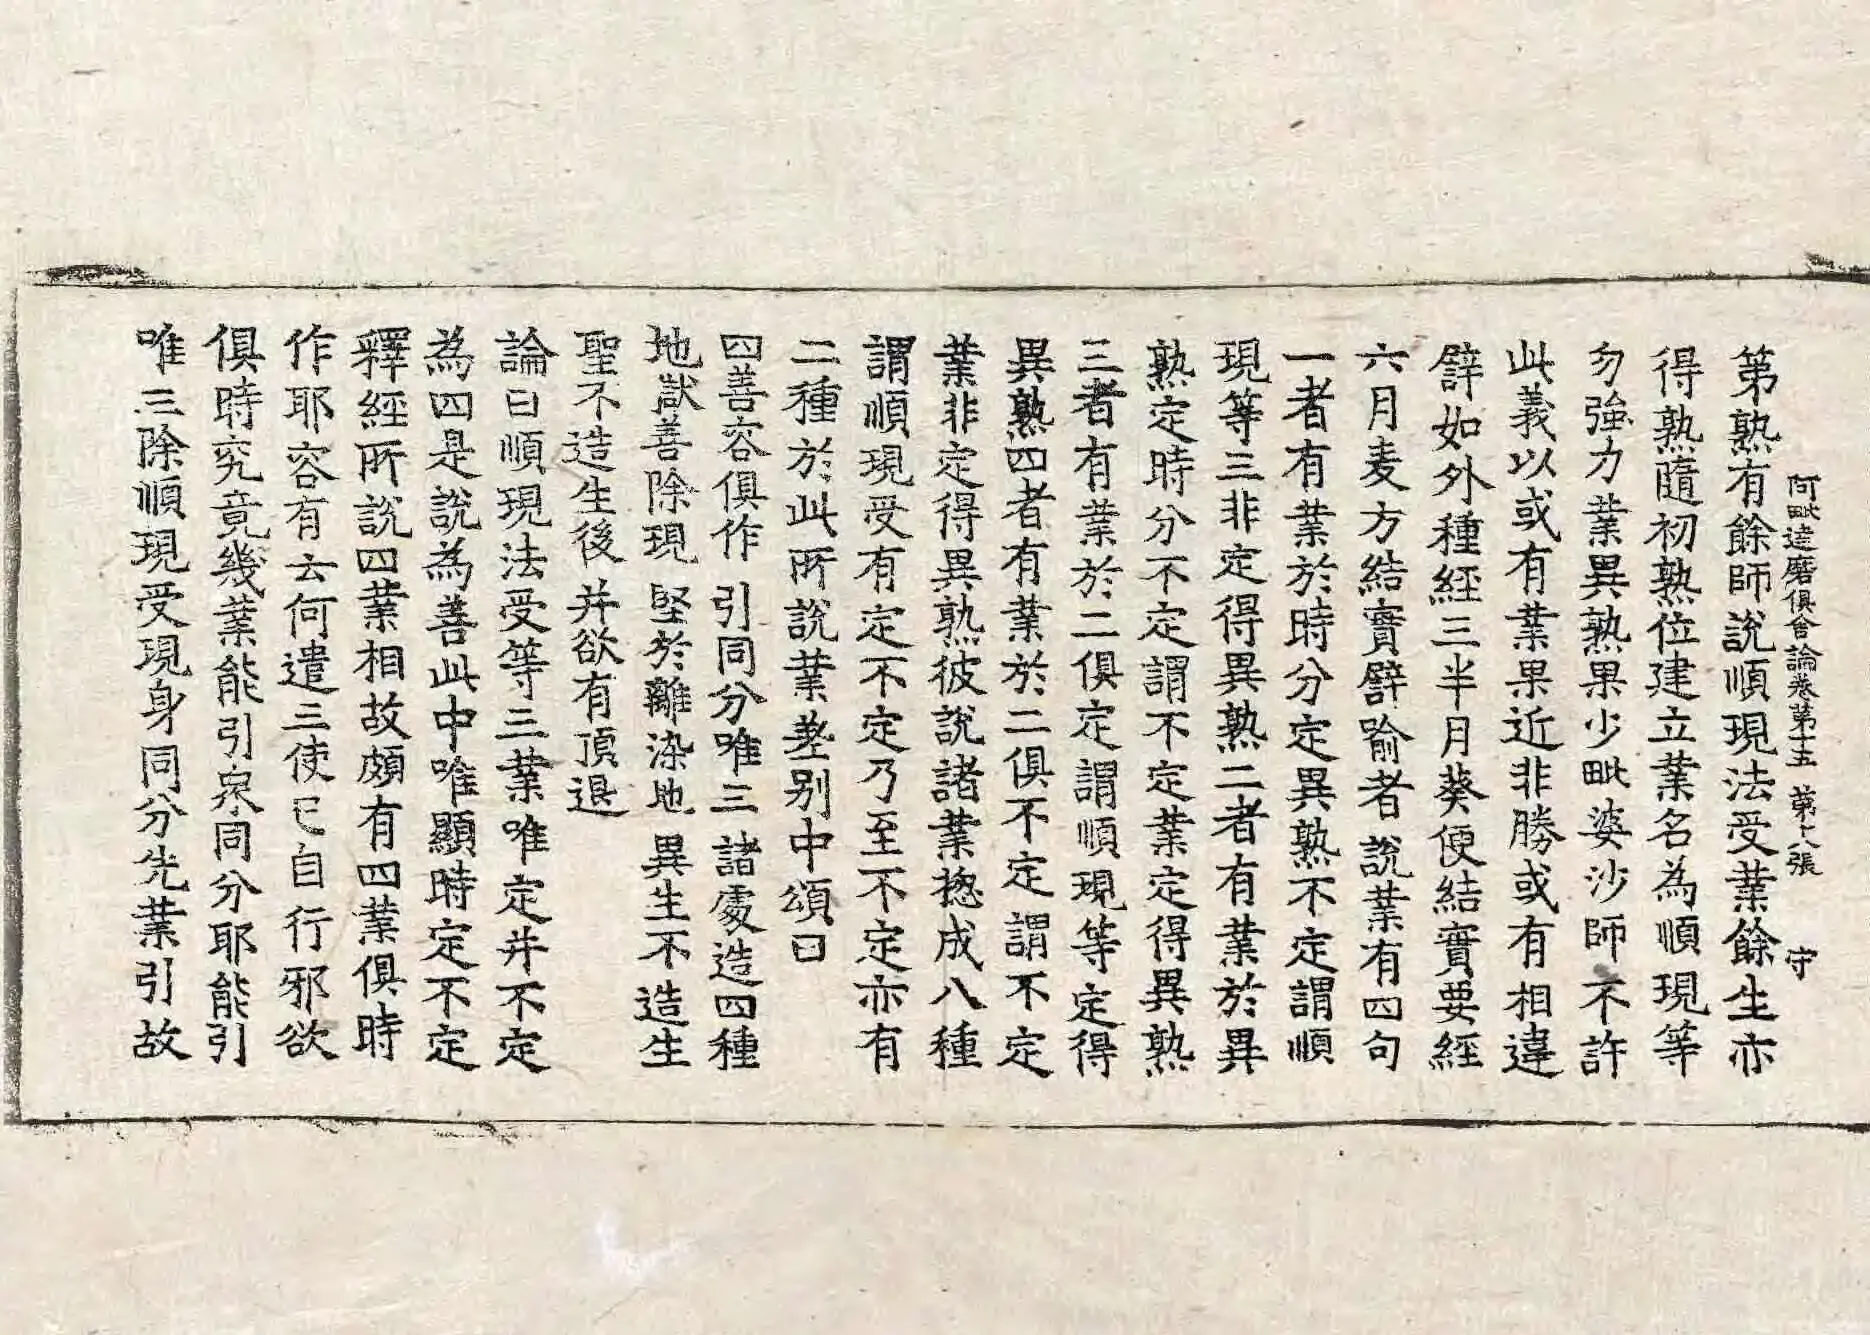 阿毗達磨俱舍論卷第十五 第十八張 守
第熟有餘師說順現法受業餘生亦
得熟隨初熟位建立業名為順現等
勿強力業異熟果少毗婆沙師不許
此義以或有業果近非勝或有相違
譬如外種經三半月葵便結實要經
六月麦方結實譬喻者說業有四句
一者有業於時分定異熟不定謂順
現等三非定得異熟二者有業於異
熟定時分不定謂不定業定得異熟
三者有業於二俱定謂順現等定得
異熟四者有業於二俱不定謂不定
業非定得異熟彼說諸業揔成八種
謂順現受有定不定乃至不定亦有
二種於此所說業差别中頌曰
四善容俱作 引同分唯三 諸處造四種
地獄善除現 堅於離染地 異生不造生
聖不造生後 并欲有頂退
論曰順現法受等三業唯定并不定
為四是說為善此中唯顯時定不定
釋經所說四業相故頗有四業俱時
作耶容有云何遣三使已自行邪欲
俱時究竟幾業能引衆同分耶能引
唯三除順現受現身同分先業引故